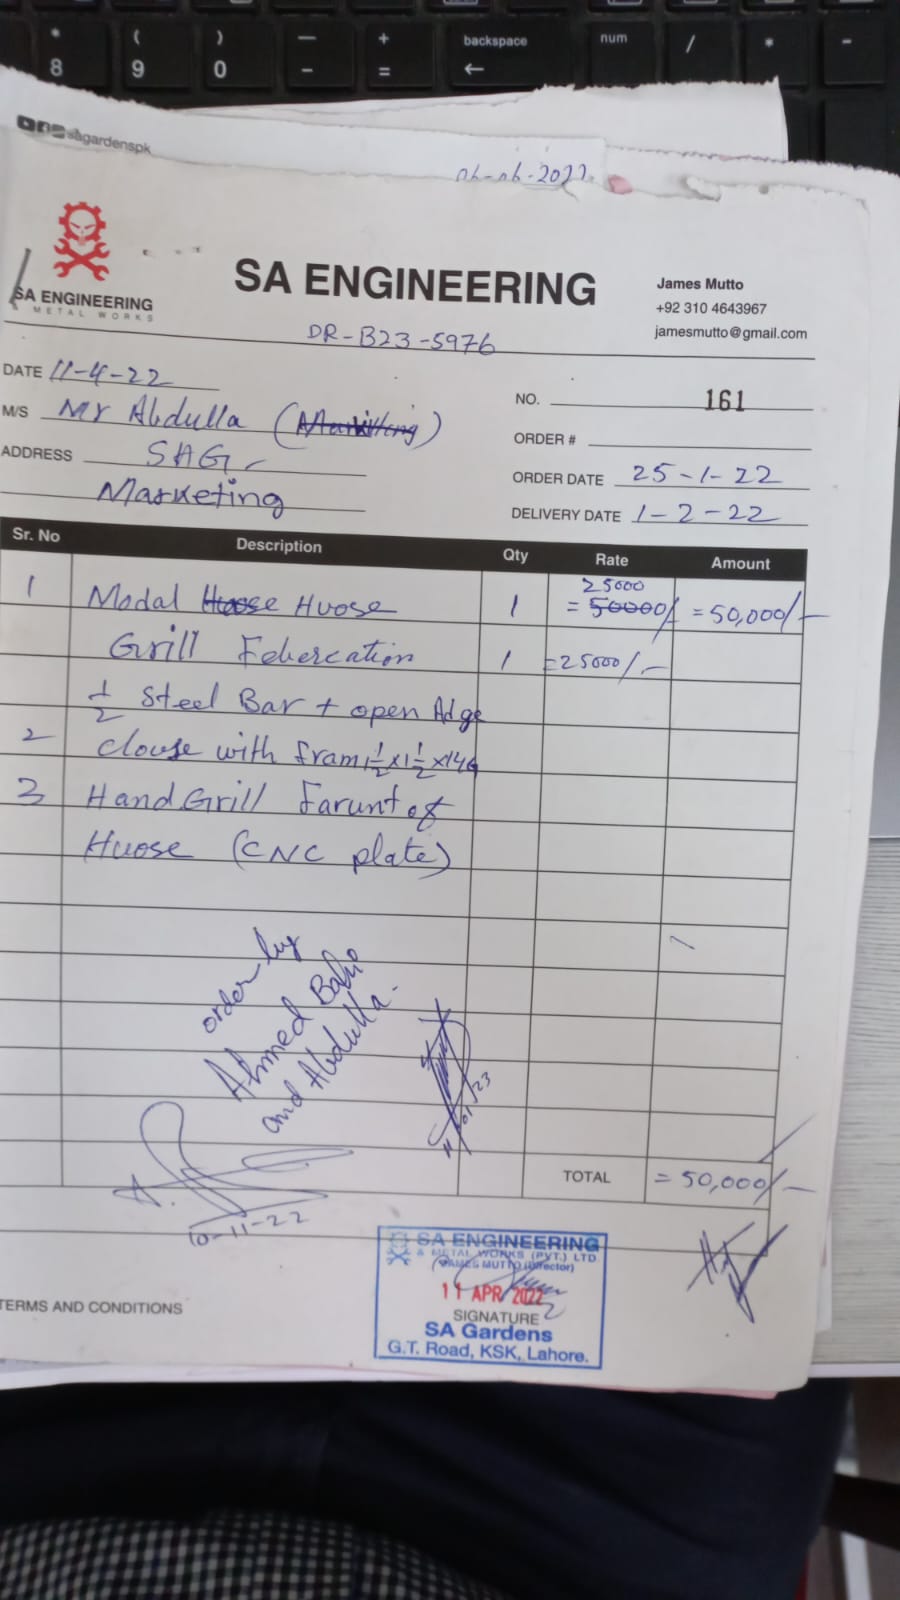 * ( ) — + backspace num / * -
8 9 0 - = ←
sagardenspk
06-06-2022
SA ENGINEERING
& METAL WORKS
SA ENGINEERING
James Mutto
+92 310 4643967
jamesmutto@gmail.com
DR-B23-5976
DATE 11-4-22
NO. 161
M/S Mr Abdulla (Marketing)
ORDER #
ADDRESS SAG
ORDER DATE 25-1-22
Marketing
DELIVERY DATE 1-2-22
Sr. No Description Qty Rate Amount
25000
1 Modal Huose Huose 1 = 50000/- = 50,000/-
Grill Febercation 1 = 25000/-
1/2 Steel Bar + open Adge
2 clouse with fram 1 1/2 x 1 1/2 x 14G
3 Hand Grill Farunt of
Huose (CNC plate)
order by
Ahmed
and Abdulla.
10-11-22
TOTAL = 50,000/-
SA ENGINEERING
& METAL WORKS (PVT.) LTD
(JAMES MUTTO (Director)
11 APR 2022
SIGNATURE
SA Gardens
G.T. Road, KSK, Lahore.
TERMS AND CONDITIONS